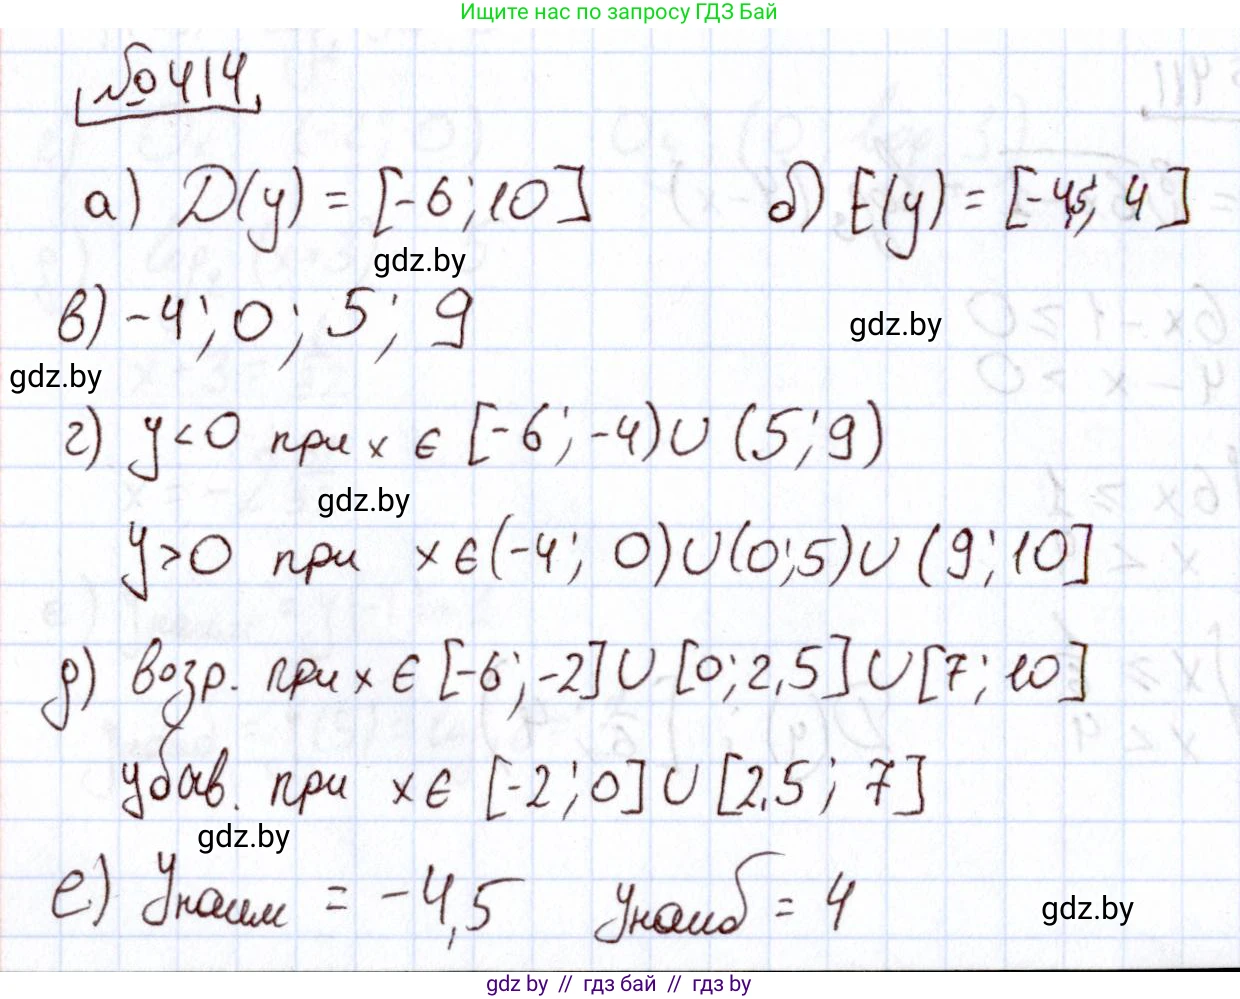 Ищите нас по запросу ГДЗ Бай
№414
а) D(y) = [-6; 10] б) E(y) = [-4,5; 4]
gdz.by
в) -4; 0; 5; 9
gdz.by
gdz.by
г) y<0 при x ∈ [-6; -4) ∪ (5; 9)
gdz.by
y>0 при x ∈ (-4; 0) ∪ (0; 5) ∪ (9; 10]
д) возр. при x ∈ [-6; -2] ∪ [0; 2,5] ∪ [7; 10]
убыв. при x ∈ [-2; 0] ∪ [2,5; 7]
gdz.by
е) Yнаим = -4,5 Yнаиб = 4
gdz.by
gdz.by // гдз бай // gdz.by